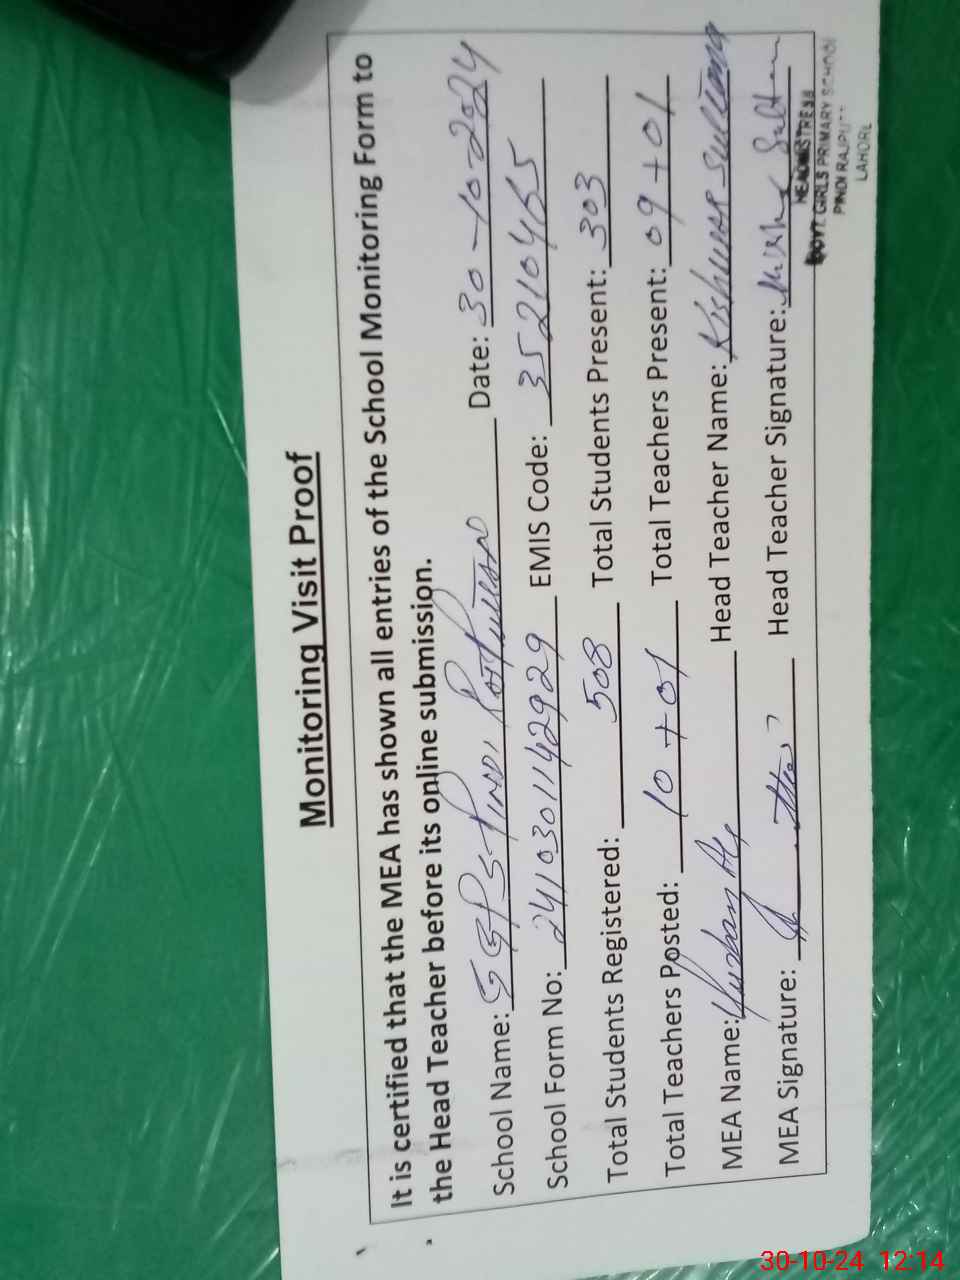 Monitoring Visit Proof
It is certified that the MEA has shown all entries of the School Monitoring Form to
the Head Teacher before its online submission.
School Name: GGPS Pindi Rajputan Date: 30-10-2024
School Form No: 2410301142929 EMIS Code: 35210465
Total Students Registered: 508 Total Students Present: 303
Total Teachers Posted: 10 + 01 Total Teachers Present: 09 + 01
MEA Name: Head Teacher Name: Kishwar Sultana
MEA Signature: Head Teacher Signature:
HEADMISTRESS
GOVT. GIRLS PRIMARY SCHOOL
PINDI RAJPUT
LAHORE
30-10-24 12:14